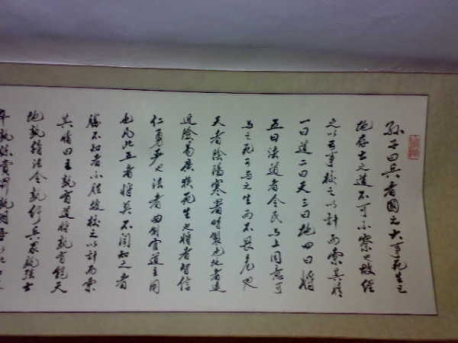 孫子曰兵者國之大事死生之
地存亡之道不可不察也故經
之以五事校之以計而索其情
一曰道二曰天三曰地四曰將
五曰法道者令民与上同意可
与之死可与之生而不畏危也
天者陰陽寒暑時制也地者遠
近險易廣狹死生也將者智信
仁勇嚴也法者曲制官道主用
也凡此五者將莫不聞知之者
勝不知者不勝故校之以計而索
其情曰主孰有道將孰有能天
地孰得法令孰行兵衆孰強士
卒孰練賞罰孰明吾